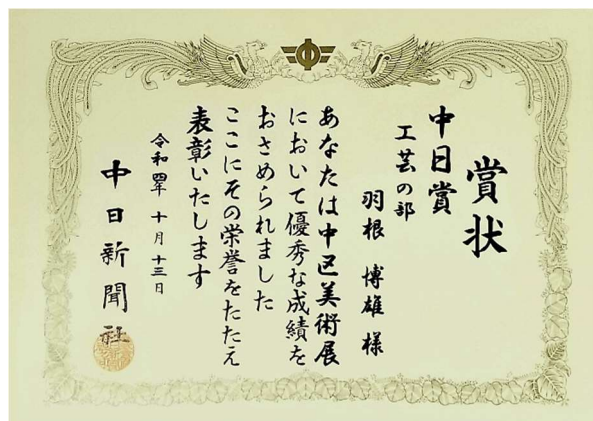 賞状
中日賞
工芸の部
羽根 博雄 様
あなたは中区美術展
において優秀な成績を
おさめられました
ここにその栄誉をたたえ
表彰いたします
令和四年 十月 十三日
中日新聞社